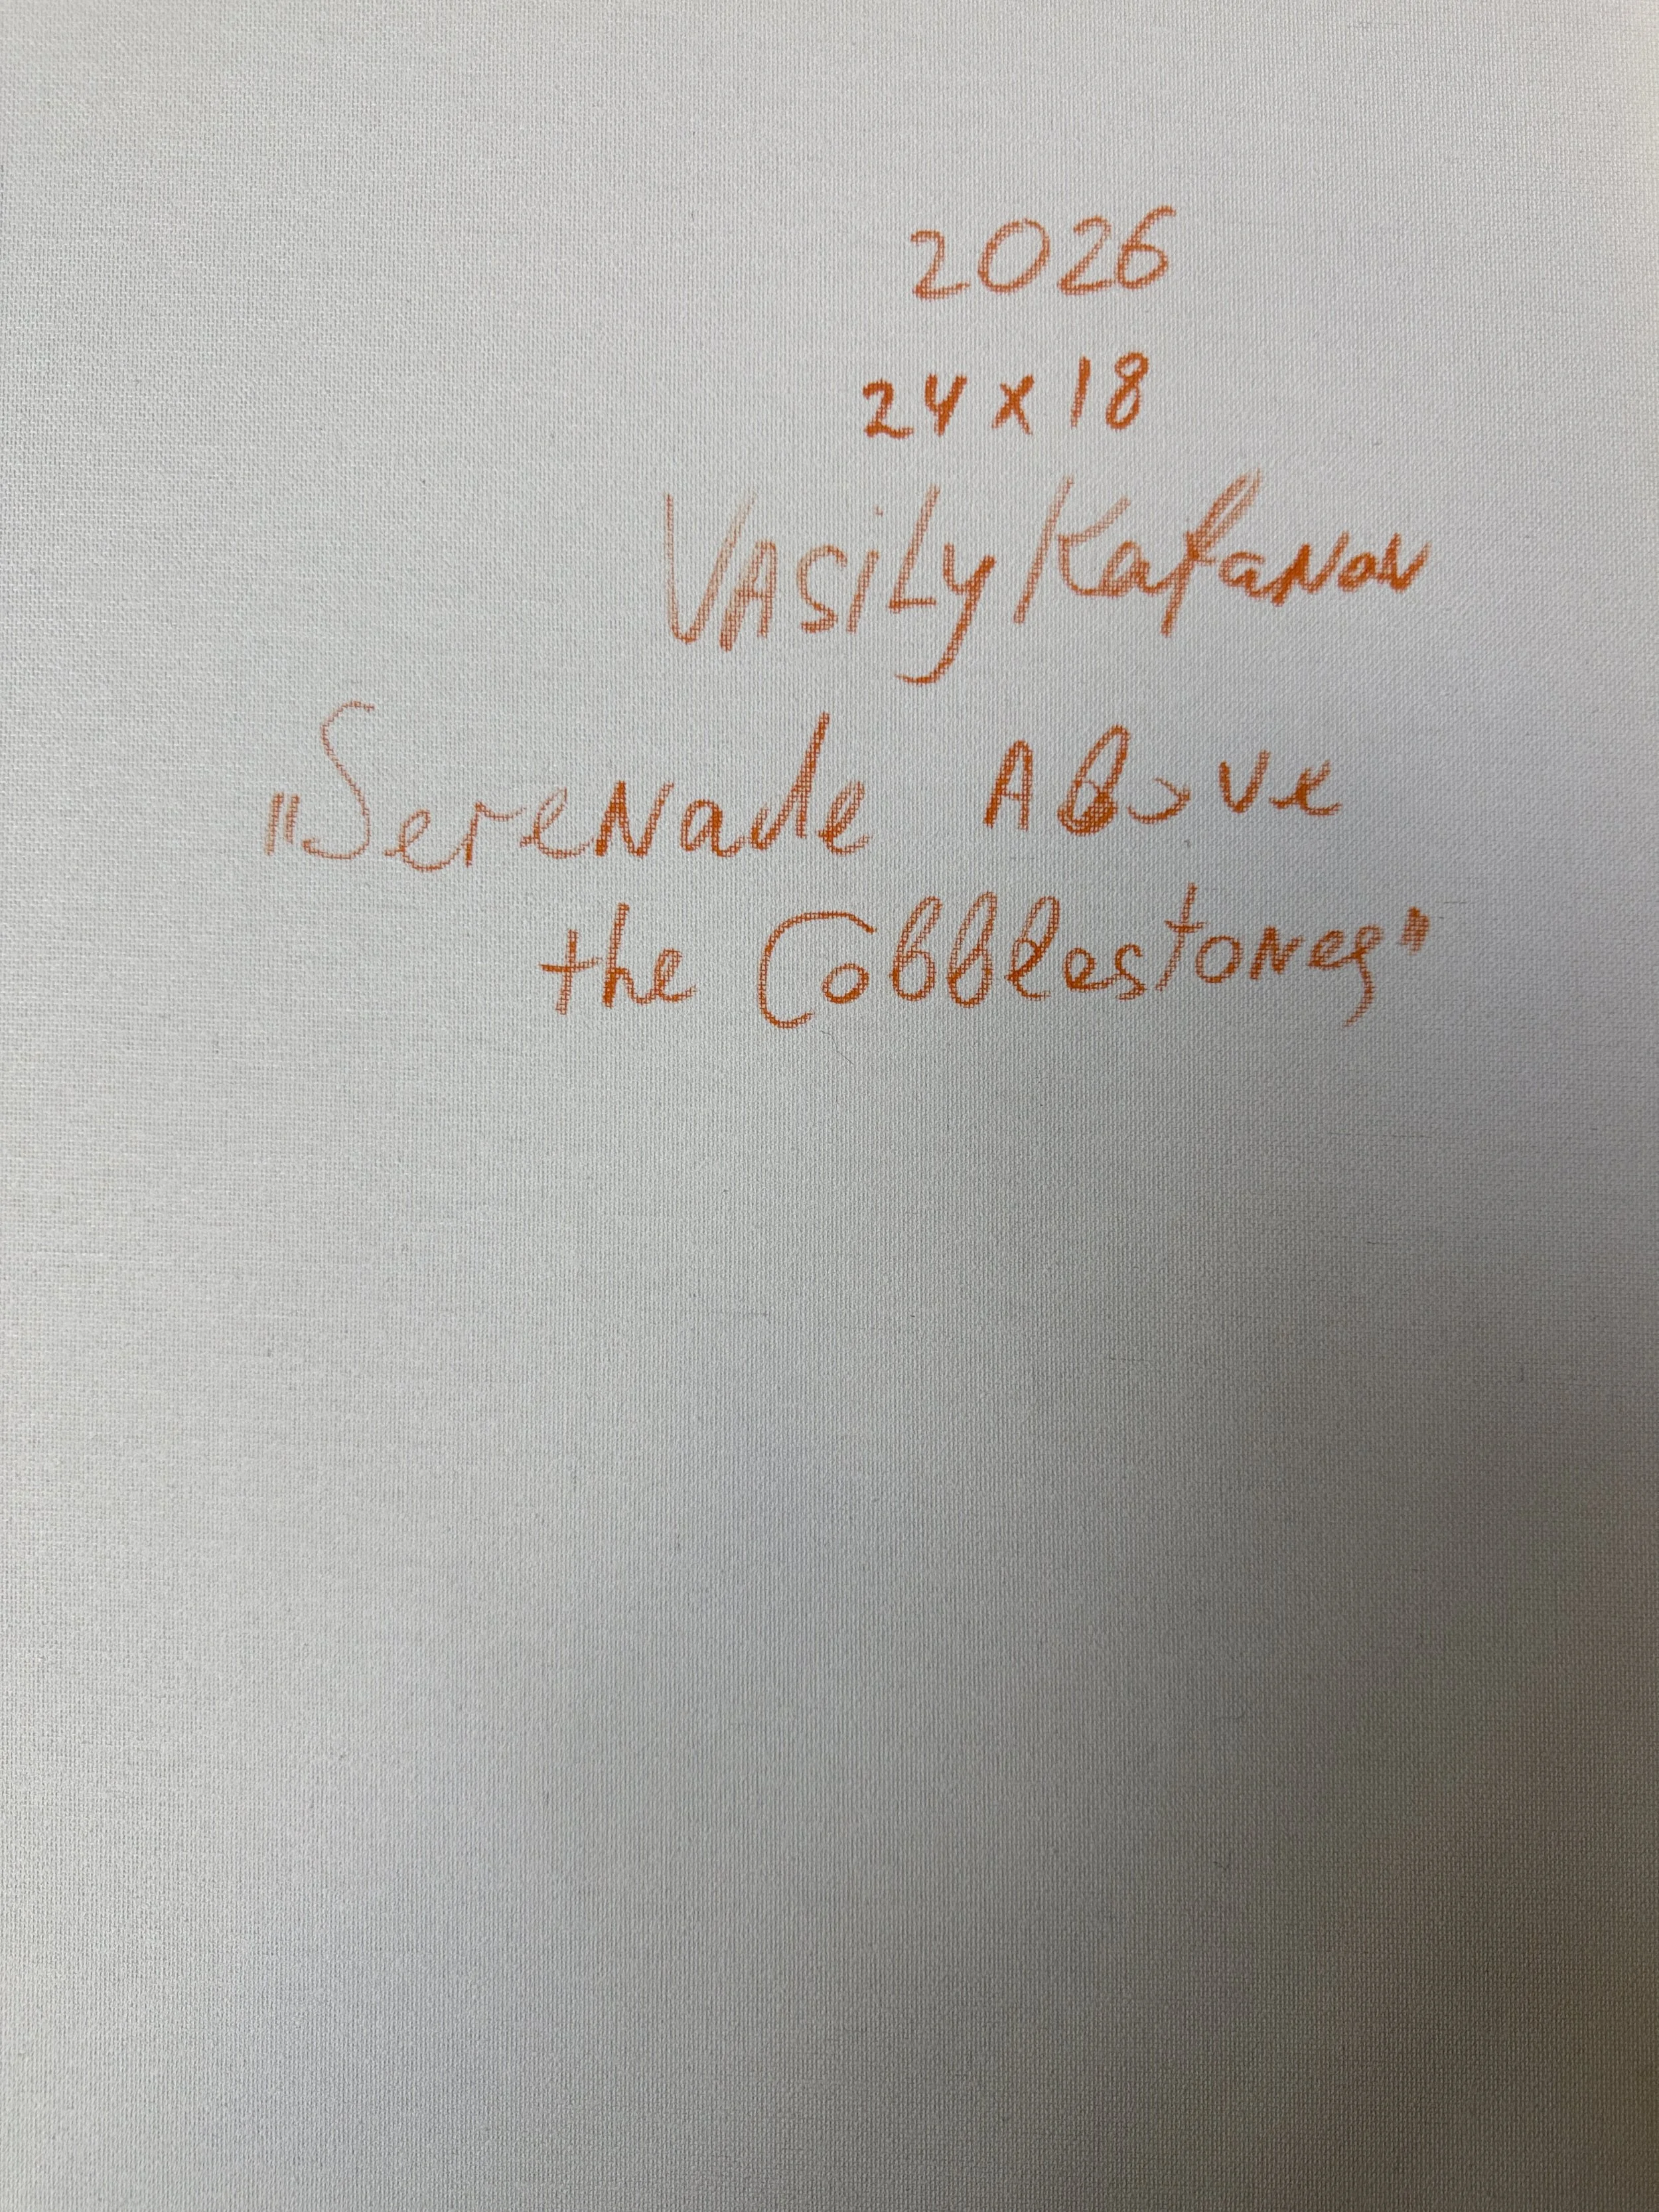 2026
24 x 18
VASiLy Kafanov
"Serenade Above
the Cobblestones"